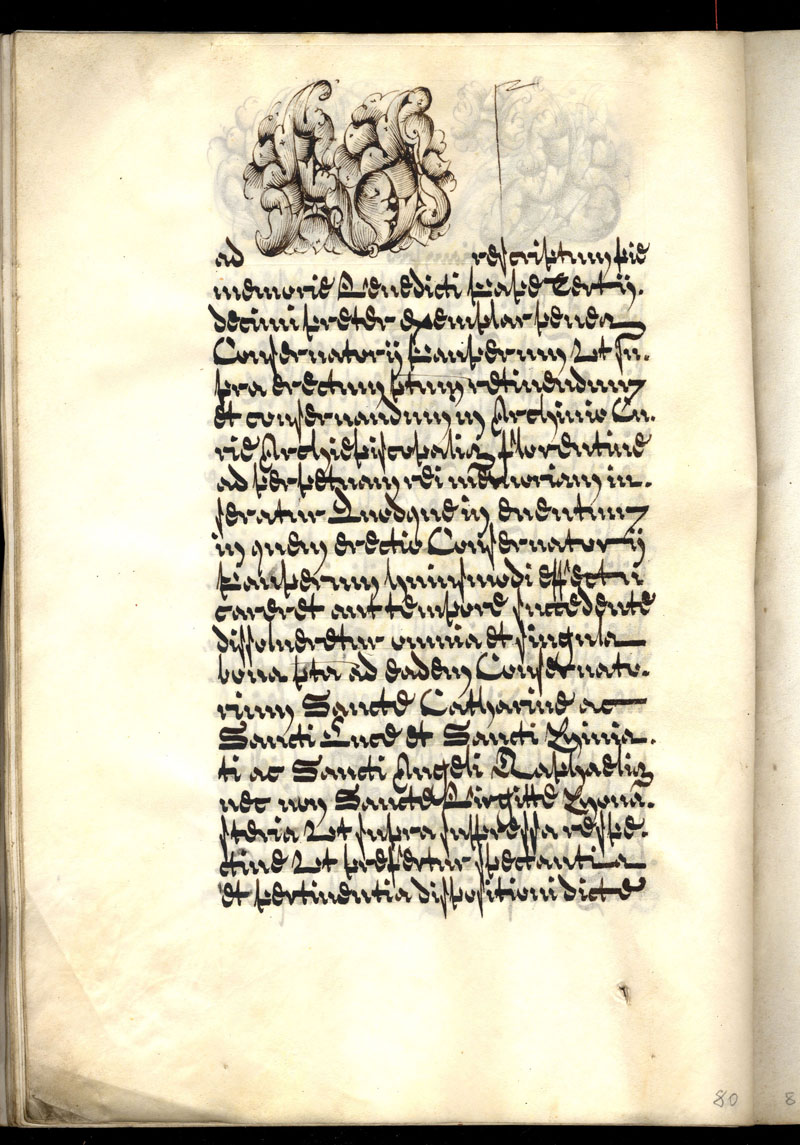 ad rescriptum pie
memorie Benedicti Pape Tertij.
decimi preter exemplar penes
Conservatorij Pauperum Ut su.
pra erectum ptum retinendum
et conservandum in Archivio Cu.
rie Archiepiscopalis florentine
ad perpetuam rei memoriam in.
seratur Quodque in eventum
in quem erectio Conservatorij
Pauperum huiusmodi effectu
careret aut tempore succedente
dissolveretur omnia et singula
bona pta ad eadem Conservato.
rium Sancte Catharine ac
Sancti Luce et Sancti Minia.
ti ac Sancti Angeli Raphaelis
nec non Sancte Birgitte Monã.
steria Ut supra suppressa respe.
ctive Ut prefertur spectantia
et pertinentia dispositioni dicte
80
8